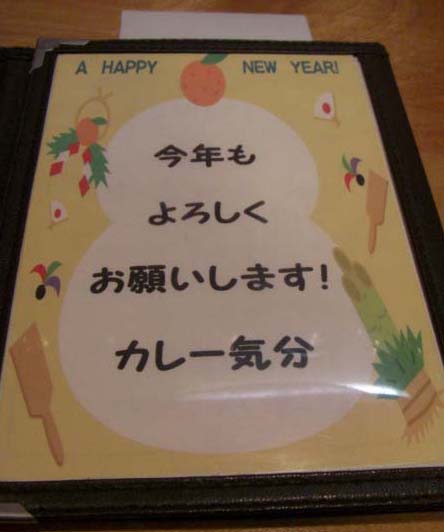 A HAPPY NEW YEAR!
今年も
よろしく
お願いします!
カレー気分